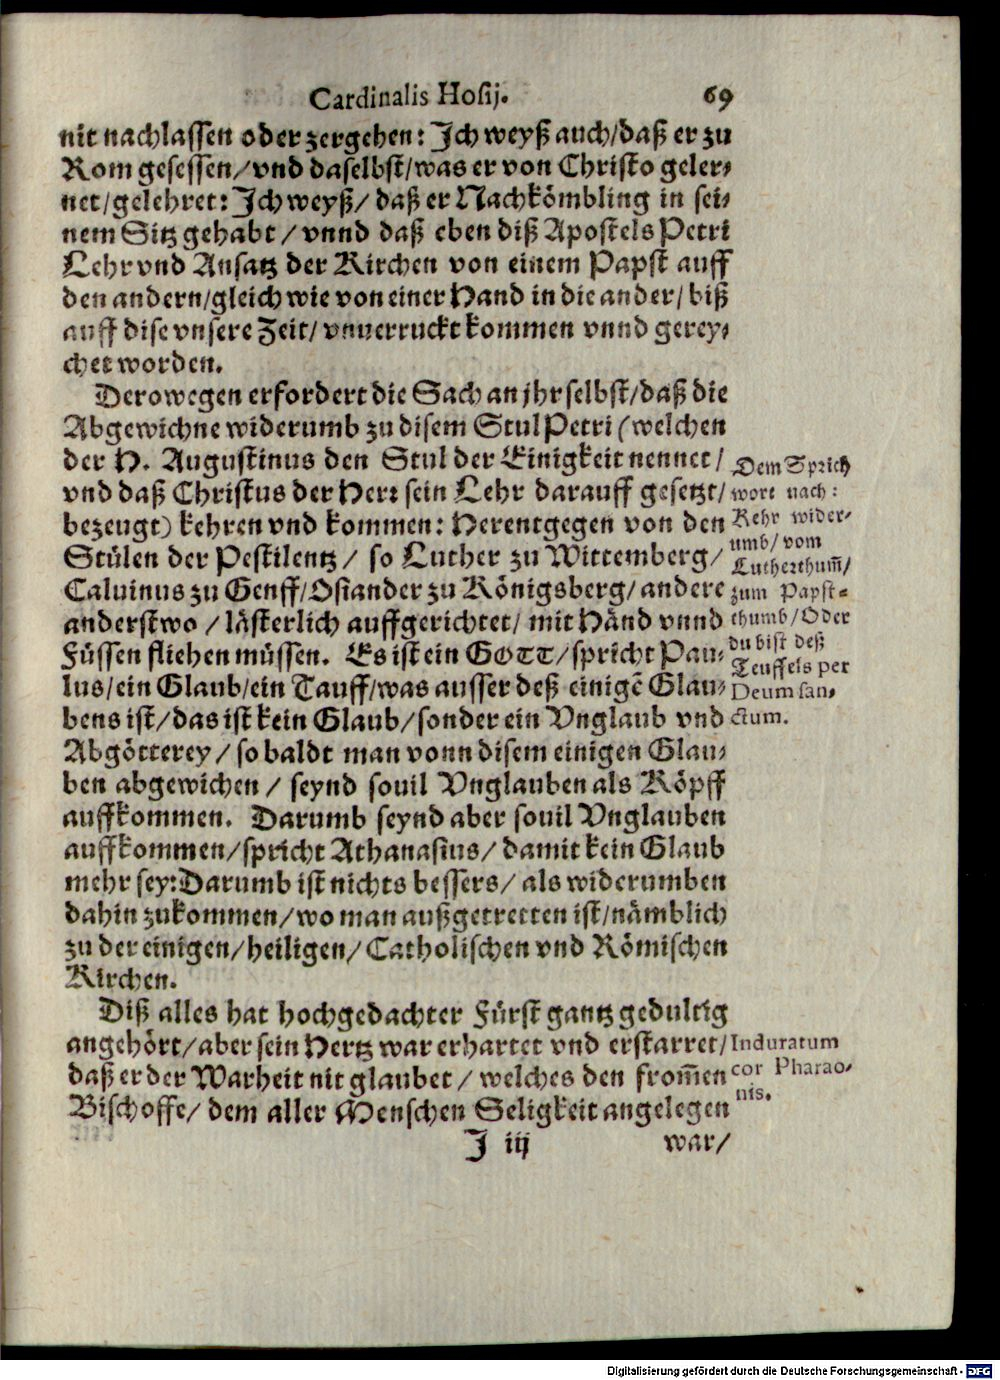 Cardinalis Hosij. 69
nit nachlassen oder zergehen: Jch weyß auch/daß er zu
Rom gesessen/vnd daselbst/was er von Christo geler⸗
net/gelehret: Jch weyß/ daß er Nachkömbling in sei⸗
nem Sitz gehabt/ vnnd daß eben diß Apostels Petri
Lehr vnd Ansatz der Kirchen von einem Papst auff
den andern/gleich wie von einer Hand in die ander/ biß
auff dise vnsere Zeit/ vnuerruckt kommen vnnd gerey⸗
chet worden.
Derowegen erfordert die Sach an jhr selbst/daß die
Abgewichne widerumb zu disem Stul Petri (welchen
der H. Augustinus den Stul der Einigkeit nennet/
vnd daß Christus der Herr sein Lehr darauff gesetzt/
bezeugt) kehren vnd kommen: Herentgegen von den
Stülen der Pestilentz/ so Luther zu Wittemberg/
Caluinus zu Genff/Osiander zu Königsberg/andere
anderstwo/ lästerlich auffgerichtet/ mit Händ vnnd
Füssen fliehen müssen. Es ist ein GOTT/spricht Pau⸗
lus/ein Glaub/ein Tauff/was ausser deß einigẽ Glau⸗
bens ist/das ist kein Glaub/sonder ein Vnglaub vnd
Abgötterey/ so baldt man vonn disem einigen Glau⸗
ben abgewichen/ seynd souil Vnglauben als Köpff
auffkommen. Darumb seynd aber souil Vnglauben
auffkommen/spricht Athanasius/ damit kein Glaub
mehr sey: Darumb ist nichts bessers/ als widerumben
dahin zukommen/wo man außgetretten ist/nämblich
zu der einigen/heiligen/ Catholischen vnd Römischen
Kirchen.
Dem Sprich
wort nach:
Kehr wider⸗
umb/ vom
Lutherthum̃/
zum Papst⸗
thumb/Oder
du bist deß
Teuffels per
Deum san⸗
ctum.
Diß alles hat hochgedachter Fürst gantz gedultig
angehört/aber sein Hertz war erhartet vnd erstarret/
daß er der Warheit nit glaubet/ welches den from̃en
Bischoffe/ dem aller Menschen Seligkeit angelegen
Induratum
cor Pharao⸗
nis.
J iij war/
Digitalisierung gefördert durch die Deutsche Forschungsgemeinschaft - DFG